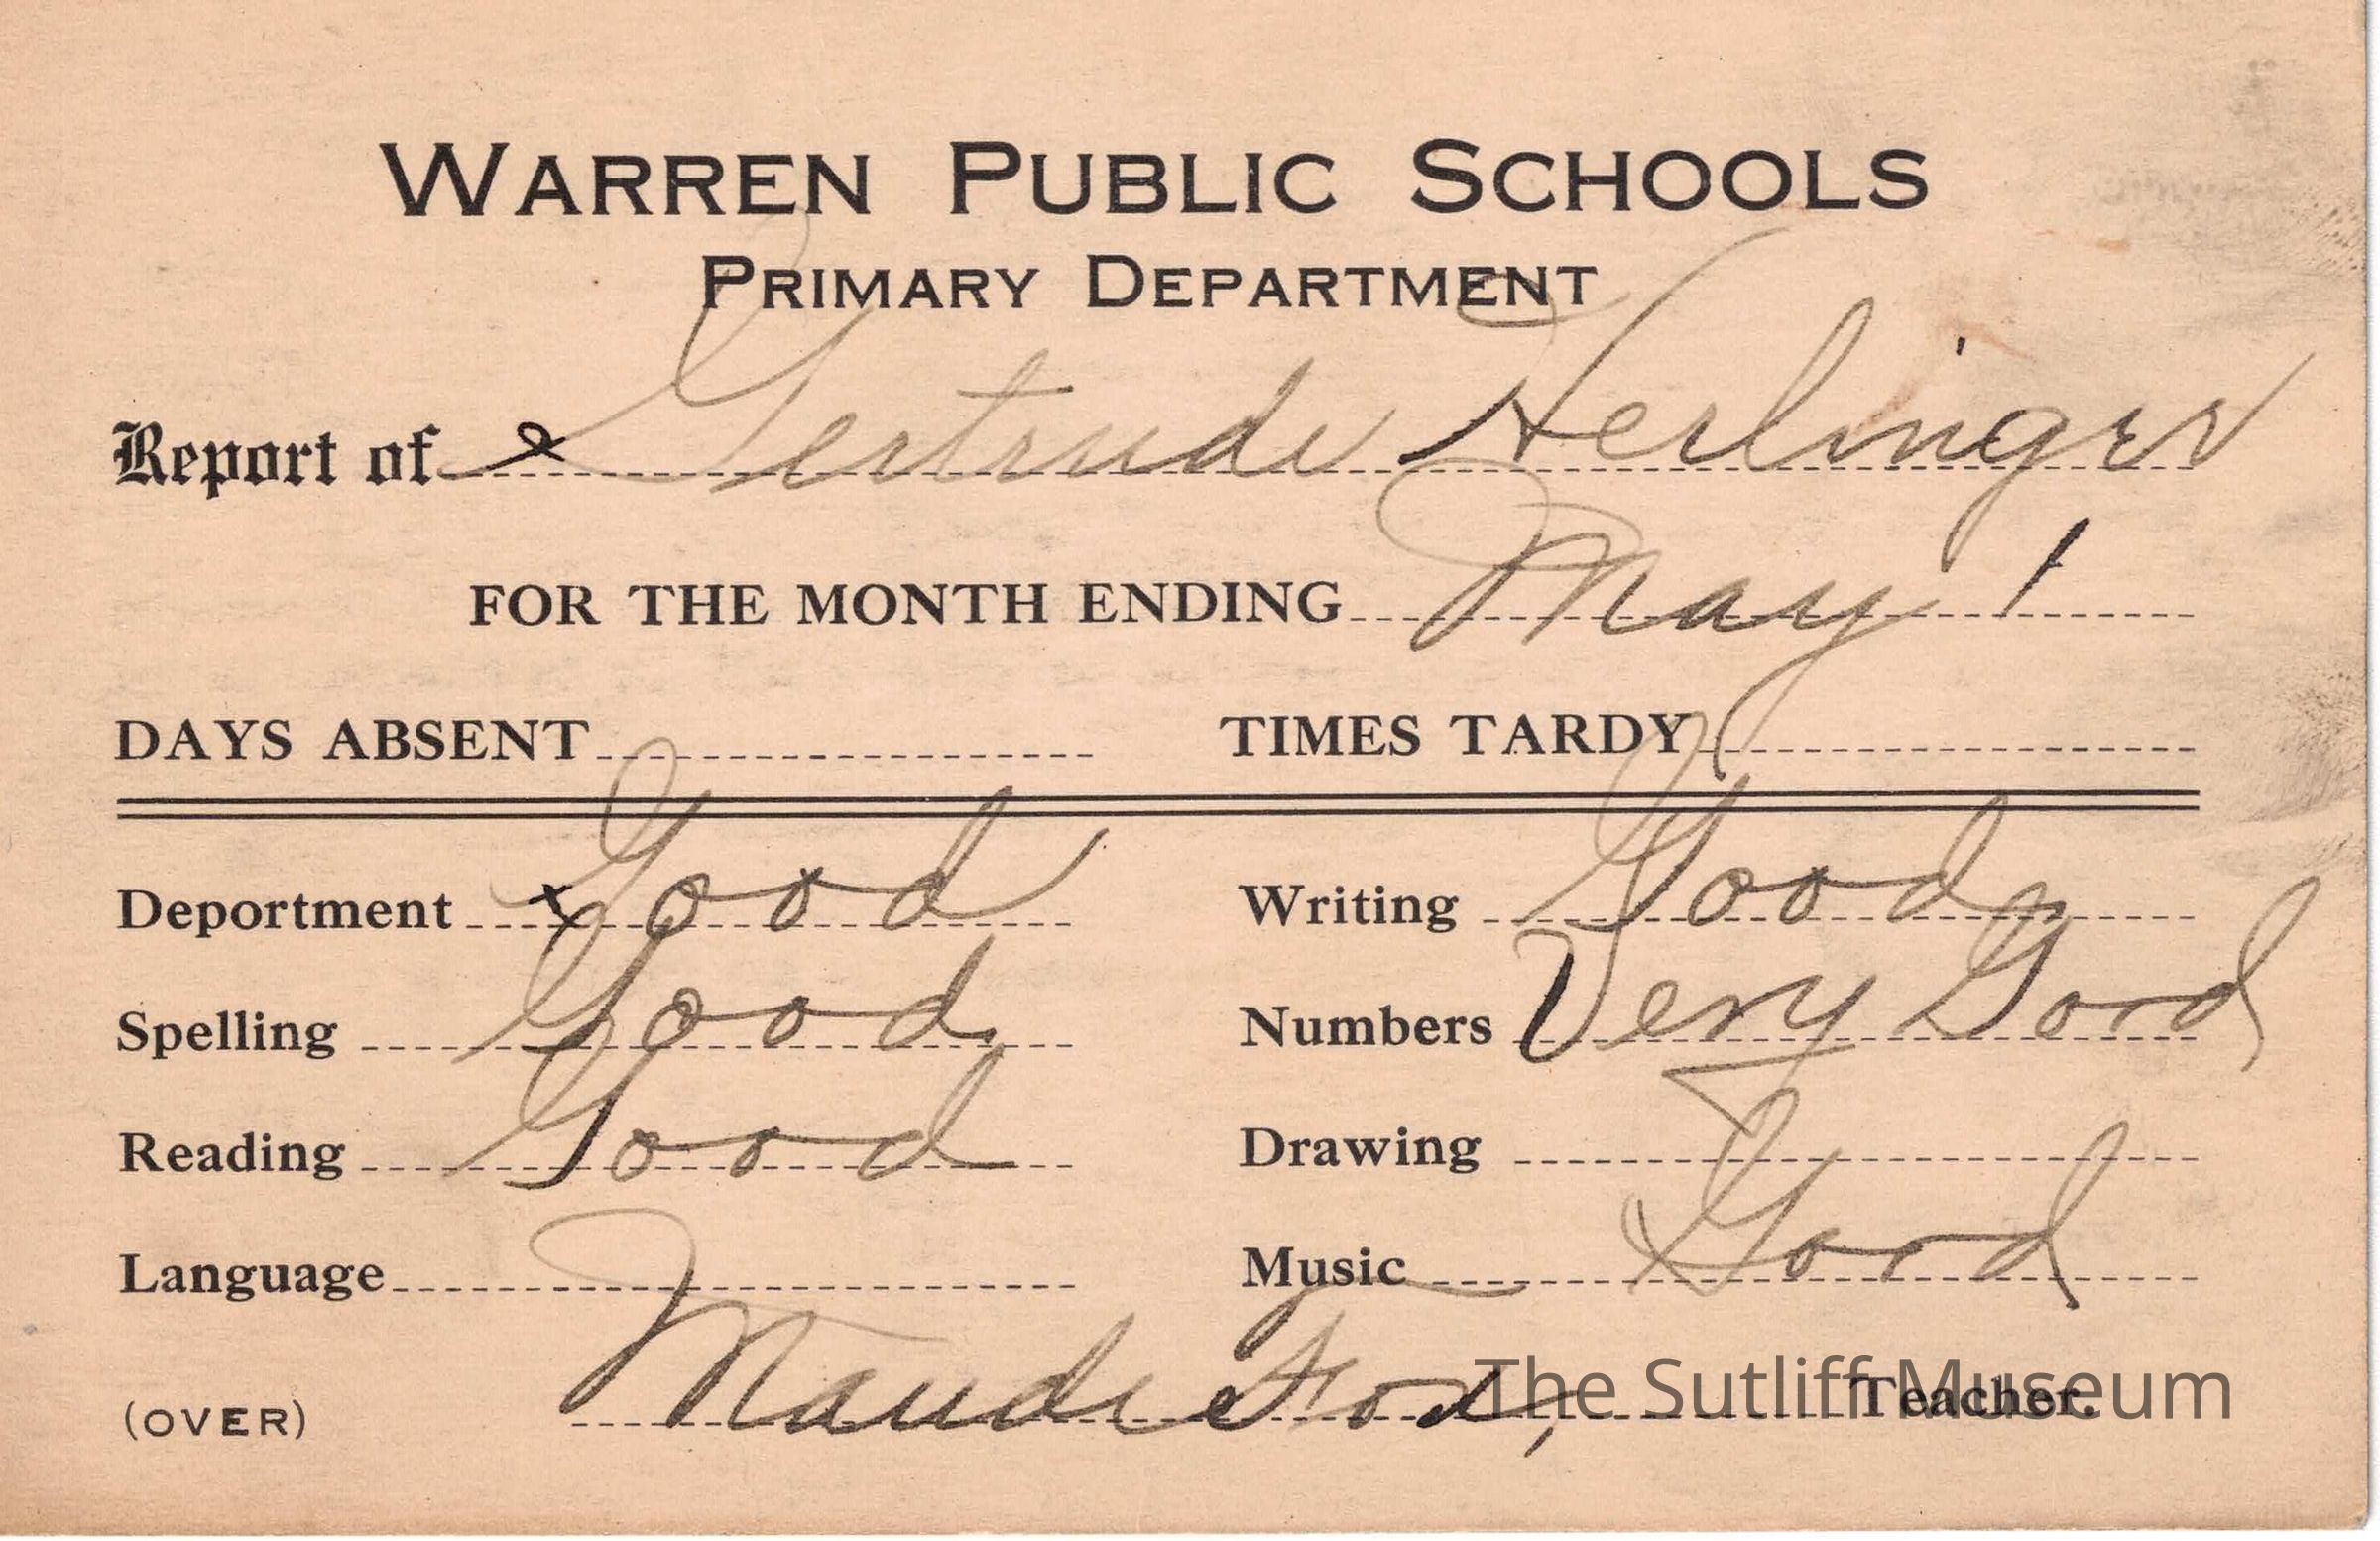 WARREN PUBLIC SCHOOLS
PRIMARY DEPARTMENT
Report of Gertrude Herlinger
FOR THE MONTH ENDING May 1
DAYS ABSENT TIMES TARDY
Deportment Good Writing Good
Spelling Good Numbers Very Good
Reading Good Drawing
Language Music Good
(OVER) Maude Teacher.
The Sutliff Museum